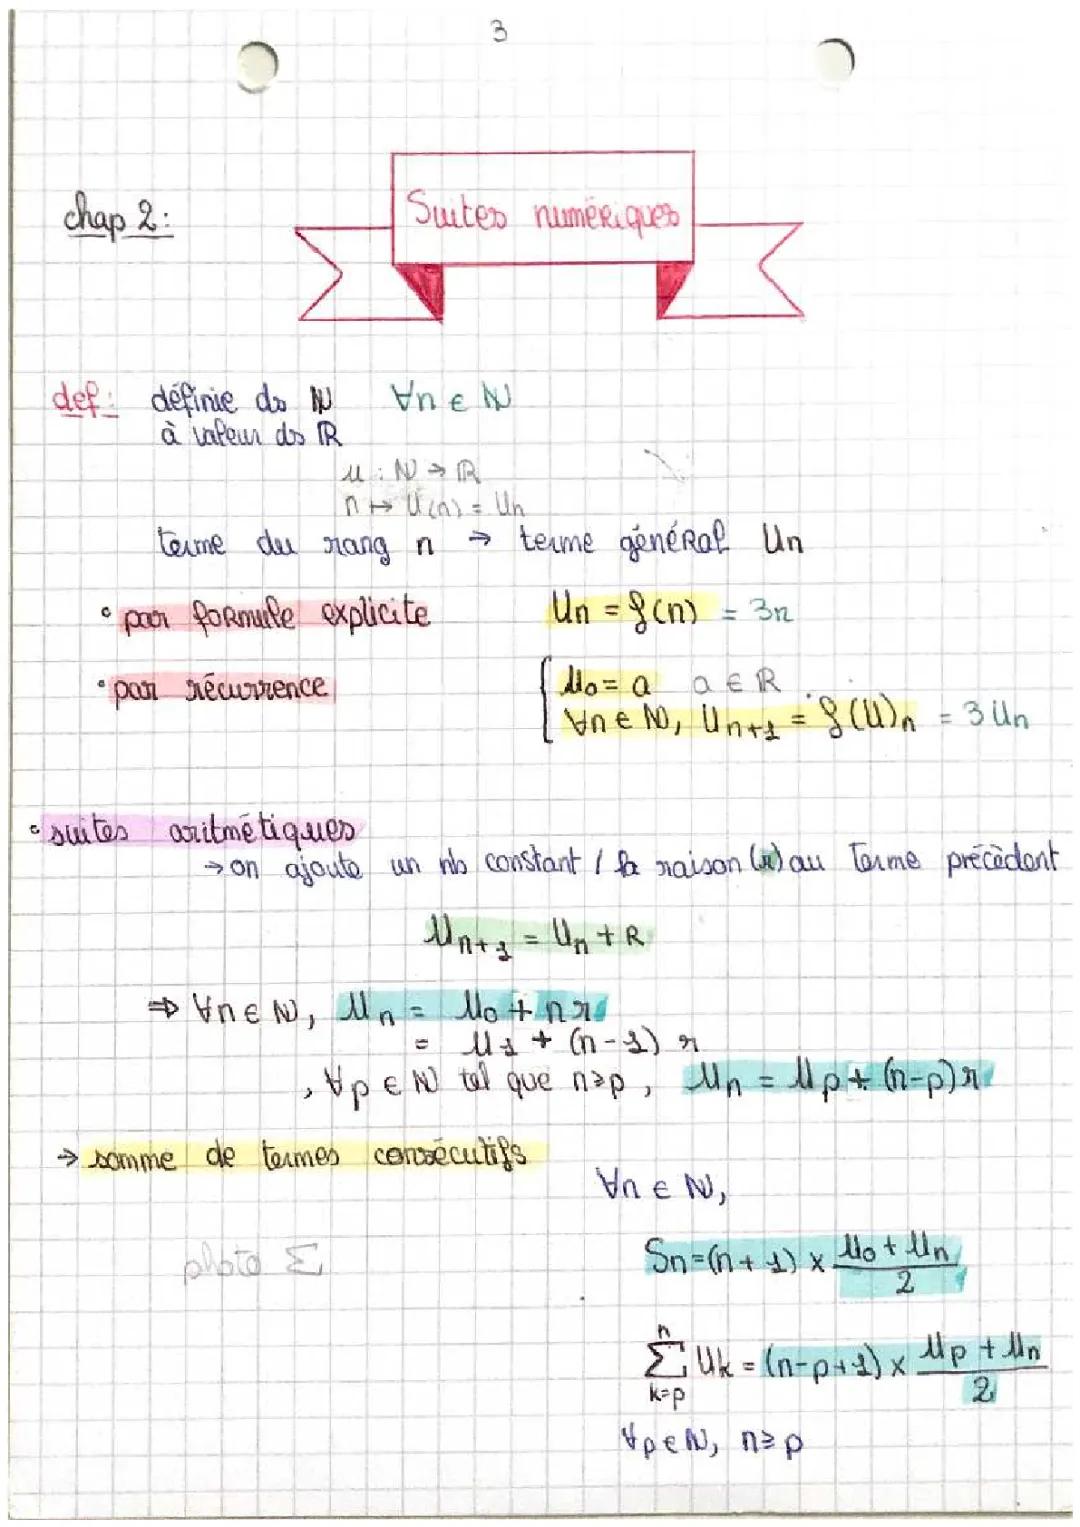 3
chap 2:
Suites numériques
def: définie ds ℕ ∀n ∈ ℕ
à valeur ds ℝ
u : ℕ → ℝ
n ↦ U(n) = Un
terme du rang n → terme général Un
• par formule explicite Un = f(n) = 3n
• par récurrence { U₀ = a a ∈ ℝ
∀n ∈ ℕ, Uₙ₊₁ = f(U)ₙ = 3Un
• suites aritmétiques
→ on ajoute un nb constant / la raison (r) au terme précèdent
Uₙ₊₁ = Uₙ + R
⇒ ∀n ∈ ℕ, Uₙ = U₀ + nr
= U₁ + (n-1) r
, ∀p ∈ ℕ tel que n≥p, Uₙ = Up + (n-p)r
→ somme de termes consécutifs
∀n ∈ ℕ,
photo Σ
Sn = (n + 1) × (U₀ + Un)/2
n
Σ Uk = (n-p+1) × (Up + Un)/2
k=p
∀p ∈ ℕ, n ≥ p